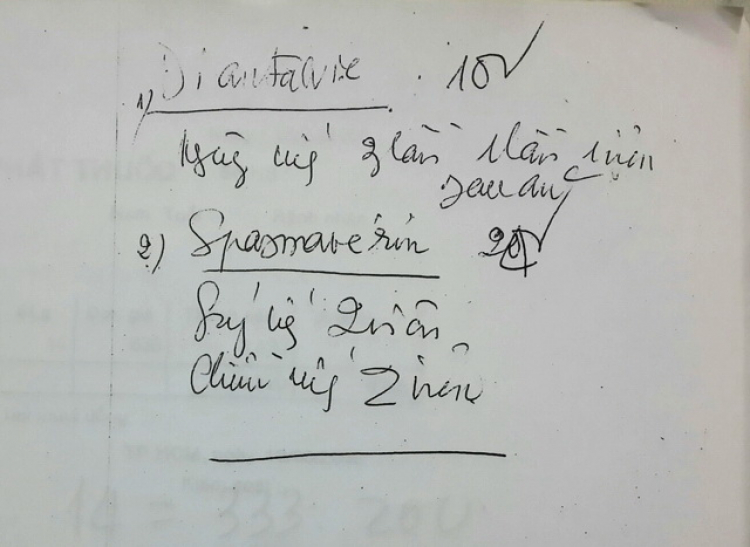 1) Diantalvic 10v
Ngày uống 2 lần 1 lần 1 viên
sau ăn
2) Spasmaverin 20v
Sáng uống 2 viên
Chiều uống 2 viên
PHÁT THUỐC
14 = 333 200